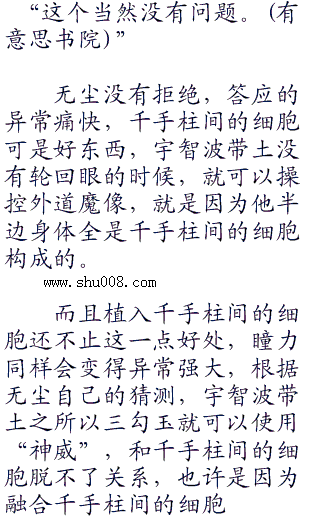 “这个当然没有问题。(有
意思书院)”
无尘没有拒绝，答应的
异常痛快，千手柱间的细胞
可是好东西，宇智波带土没
有轮回眼的时候，就可以操
控外道魔像，就是因为他半
边身体全是千手柱间的细胞
构成的。
www.shu008.com
而且植入千手柱间的细
胞还不止这一点好处，瞳力
同样会变得异常强大，根据
无尘自己的猜测，宇智波带
土之所以三勾玉就可以使用
“神威”，和千手柱间的细
胞脱不了关系，也许是因为
融合千手柱间的细胞